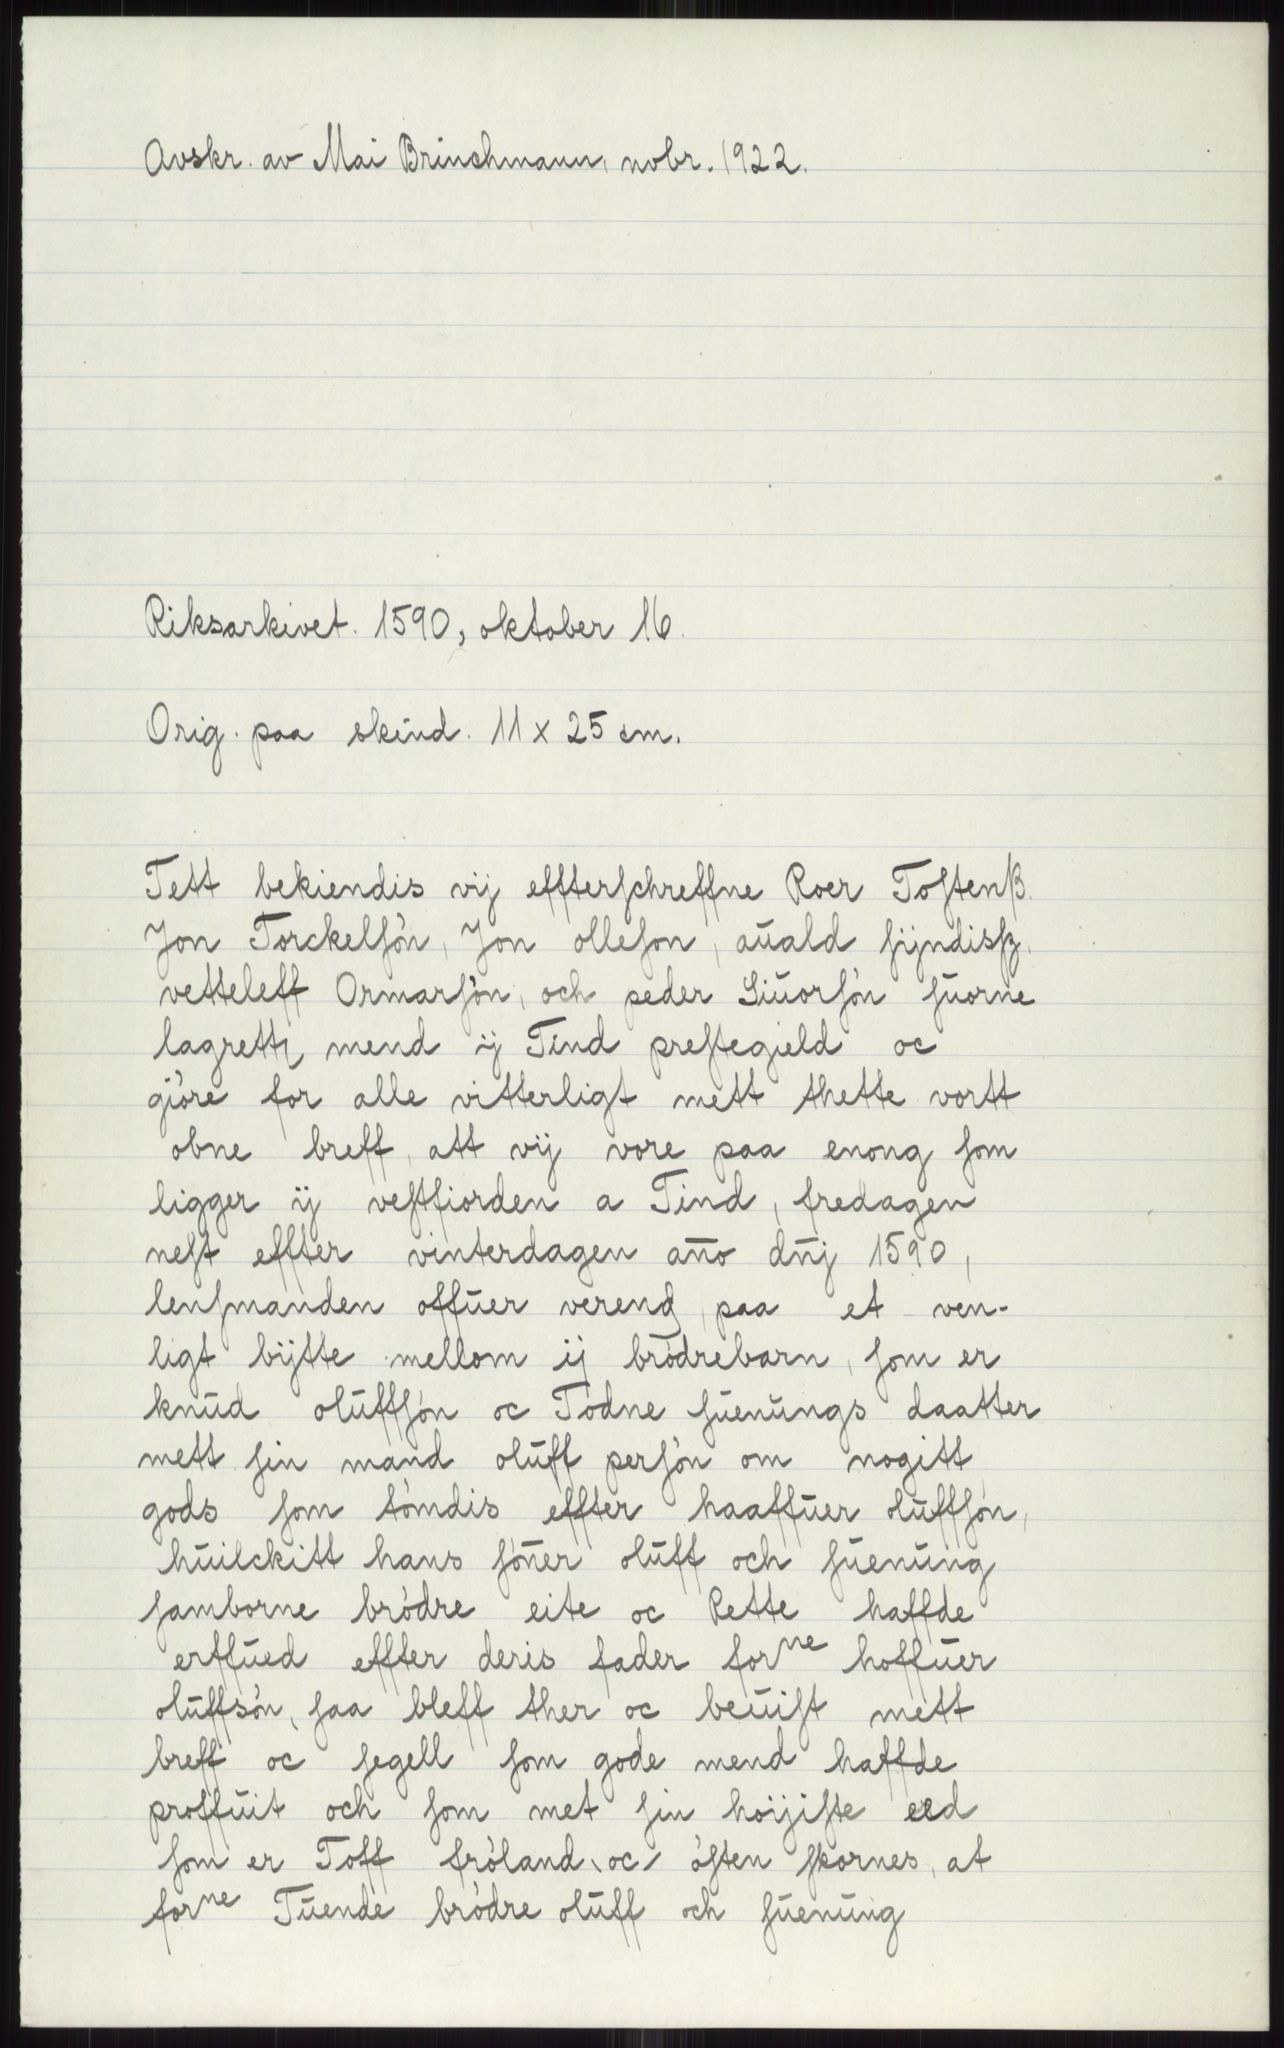 Avskr. av Mai Brinchmann, nobr. 1922.
Riksarkivet. 1590, oktober 16.
Orig. paa skind. 11 x 25 cm.
Tett bekiendis vij effterſchreffne Roer Toſtenß.
Jon Torckelſón, Jon olleſon, aŭald ſijndisſz,
vetteleff Ormarſón, och peder Siŭorſón ſŭorne
lagretti mend ij Tind preſtegield oc
gióre for alle vitterligt mett thette vortt
obne breff, att vij vore paa enong ſom
ligger ij veſtfiorden a Tind, fredagen
neſt effter vinterdagen an̄o dn̄j 1590,
lenſmanden offŭer verend, paa et ven-
ligt bÿtte mellom ij bródrebarn, ſom er
knŭd olŭffſón oc Todne ſŭenŭngs daatter
mett ſin mand olŭff perſón om nogitt
gods ſom tómdis effter haaffŭer olŭffſón,
hŭilckitt hans ſóner olŭff och ſŭenŭng
ſamborne bródre eite oc Rette haffde
erffŭed effter deris fader forne hoffŭer
olŭffsón, ſaa bleff ther oc beŭiſt mett
breff oc ſegell ſom gode mend haffde
proffŭit och ſom met ſin hoÿiſte eed
ſom er Toff fróland oc óſten ſkornes, at
forne Tŭende bródre olŭff och ſŭenŭng